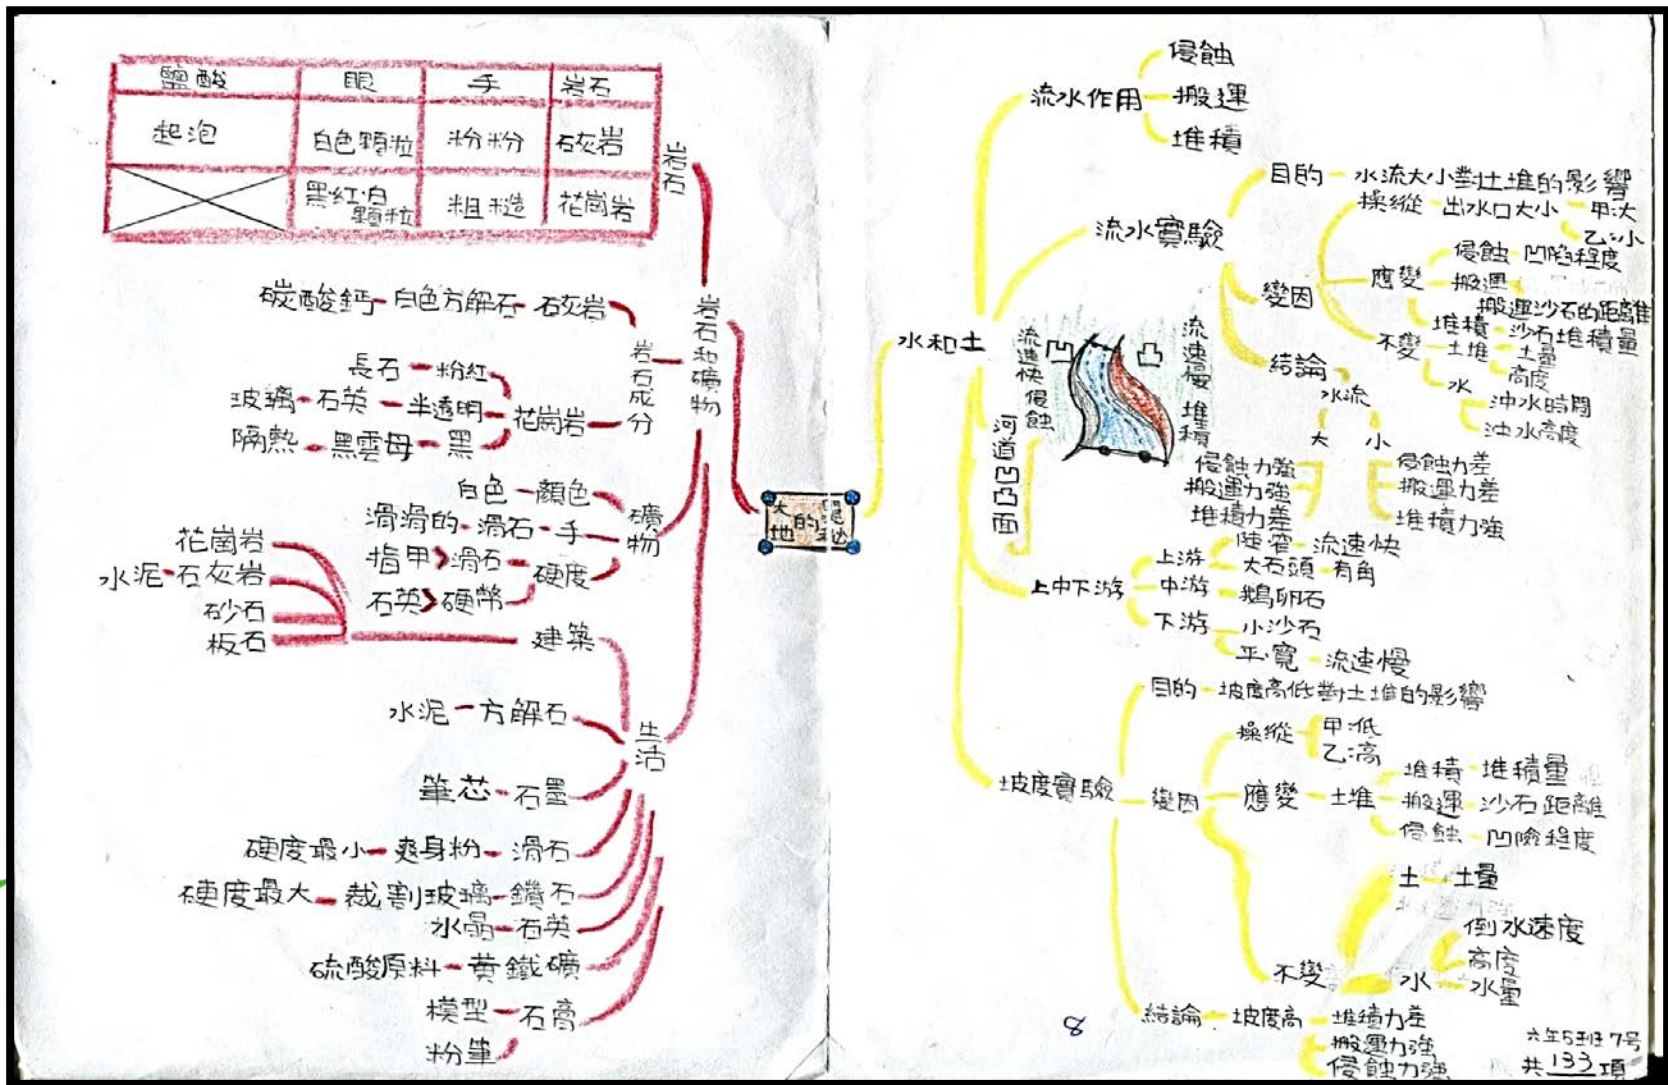 鹽酸 眼 手 岩石
起泡 白色顆粒 粉粉 石灰岩
黑.紅.白顆粒 粗糙 花崗岩
岩石和礦物
碳酸鈣-白色方解石-石灰岩
岩石成分
長石-粉紅
玻璃-石英-半透明
花崗岩
隔熱-黑雲母-黑
白色-顏色
滑滑的-滑石-手
礦物
指甲>滑石
硬度
石英>硬幣
花崗岩
水泥-石灰岩
砂石
板石
建築
水泥-方解石
生活
筆芯-石墨
硬度最小-爽身粉-滑石
硬度最大-裁割玻璃-鑽石
水晶-石英
硫酸原料-黃鐵礦
模型-石膏
粉筆
大地的
水和土
流水作用
侵蝕
搬運
堆積
流水實驗
目的-水流大小對土堆的影響
變因
操縱-出水口大小-甲:大
乙:小
應變
侵蝕-凹陷程度
搬運
搬運沙石的距離
堆積-沙石堆積量
不變-土堆-土量
高度
水
沖水時間
沖水高度
結論
水流
大 小
侵蝕力強
搬運力強
堆積力差
侵蝕力差
搬運力差
堆積力強
河道凹凸面
流速快侵蝕
凹
凸
流速慢堆積
上中下游
上游-陡.窄-流速快
大石頭-有角
中游-鵝卵石
下游-小沙石
平.寬-流速慢
坡度實驗
目的-坡度高低對土堆的影響
變因
操縱
甲:低
乙:高
應變-土堆
堆積-堆積量
搬運-沙石距離
侵蝕-凹險程度
不變
土-土量
水
倒水速度
高度
水量
結論-坡度高-堆積力差
搬運力強
侵蝕力強
8
六年5班7号
共133項